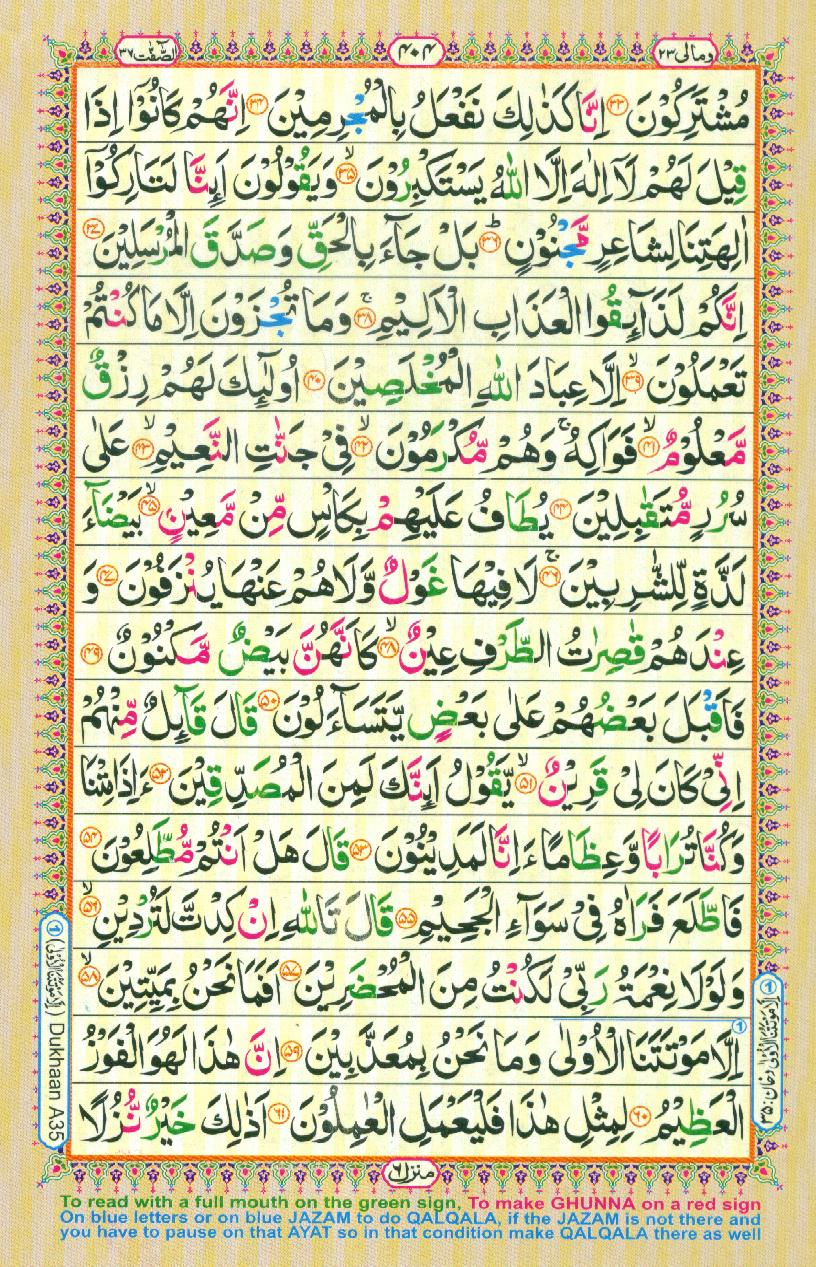 الصّٰفّٰت ٣٧
٤٠٤
ومالی ٢٣
مُشْتَرِكُوْنَ ﴿٣٣﴾ اِنَّا كَذٰلِكَ نَفْعَلُ بِالْمُجْرِمِيْنَ ﴿٣٤﴾ اِنَّهُمْ كَانُوْۤا اِذَا
قِيْلَ لَهُمْ لَاۤ اِلٰهَ اِلَّا اللّٰهُ يَسْتَكْبِرُوْنَ ﴿٣٥﴾ۙ وَيَقُوْلُوْنَ اَئِنَّا لَتَارِكُوْۤا
اٰلِهَتِنَا لِشَاعِرٍ مَّجْنُوْنٍ ﴿٣٦﴾ؕ بَلْ جَآءَ بِالْحَقِّ وَصَدَّقَ الْمُرْسَلِيْنَ ﴿٣٧﴾
اِنَّكُمْ لَذَآئِقُوا الْعَذَابِ الْاَلِيْمِ ﴿٣٨﴾ۚ وَمَا تُجْزَوْنَ اِلَّا مَا كُنْتُمْ
تَعْمَلُوْنَ ﴿٣٩﴾ۙ اِلَّا عِبَادَ اللّٰهِ الْمُخْلَصِيْنَ ﴿٤٠﴾ اُولٰٓئِكَ لَهُمْ رِزْقٌ
مَّعْلُوْمٌ ﴿٤١﴾ۙ فَوَاكِهُ ۚ وَهُمْ مُّكْرَمُوْنَ ﴿٤٢﴾ۙ فِيْ جَنّٰتِ النَّعِيْمِ ﴿٤٣﴾ۙ عَلٰى
سُرُرٍ مُّتَقٰبِلِيْنَ ﴿٤٤﴾ يُطَافُ عَلَيْهِمْ بِكَاْسٍ مِّنْ مَّعِيْنٍ ﴿٤٥﴾ۙ بَيْضَآءَ
لَذَّةٍ لِّلشّٰرِبِيْنَ ﴿٤٦﴾ۚ لَا فِيْهَا غَوْلٌ وَّلَا هُمْ عَنْهَا يُنْزَفُوْنَ ﴿٤٧﴾ وَ
عِنْدَهُمْ قٰصِرٰتُ الطَّرْفِ عِيْنٌ ﴿٤٨﴾ۙ كَاَنَّهُنَّ بَيْضٌ مَّكْنُوْنٌ ﴿٤٩﴾
فَاَقْبَلَ بَعْضُهُمْ عَلٰى بَعْضٍ يَّتَسَآءَلُوْنَ ﴿٥٠﴾ قَالَ قَآئِلٌ مِّنْهُمْ
اِنِّيْ كَانَ لِيْ قَرِيْنٌ ﴿٥١﴾ۙ يَّقُوْلُ اَئِنَّكَ لَمِنَ الْمُصَدِّقِيْنَ ﴿٥٢﴾ ءَاِذَا مِتْنَا
وَكُنَّا تُرَابًا وَّعِظَامًا ءَاِنَّا لَمَدِيْنُوْنَ ﴿٥٣﴾ قَالَ هَلْ اَنْتُمْ مُّطَّلِعُوْنَ ﴿٥٤﴾
فَاطَّلَعَ فَرَاٰهُ فِيْ سَوَآءِ الْجَحِيْمِ ﴿٥٥﴾ قَالَ تَاللّٰهِ اِنْ كِدْتَّ لَتُرْدِيْنِ ﴿٥٦﴾ۙ
وَلَوْلَا نِعْمَةُ رَبِّيْ لَكُنْتُ مِنَ الْمُحْضَرِيْنَ ﴿٥٧﴾ اَفَمَا نَحْنُ بِمَيِّتِيْنَ ﴿٥٨﴾ۙ
اِلَّا مَوْتَتَنَا الْاُوْلٰى وَمَا نَحْنُ بِمُعَذَّبِيْنَ ﴿٥٩﴾ اِنَّ هٰذَا لَهُوَ الْفَوْزُ
الْعَظِيْمُ ﴿٦٠﴾ لِمِثْلِ هٰذَا فَلْيَعْمَلِ الْعٰمِلُوْنَ ﴿٦١﴾ اَذٰلِكَ خَيْرٌ نُّزُلًا
① اِلَّا مَوْتَتَنَا الْاُوْلٰى دخان : ٣٥
① (اِلَّا مَوْتَتُنَا الْاُوْلٰى) Dukhaan A35
منزل ٦
To read with a full mouth on the green sign, To make GHUNNA on a red sign
On blue letters or on blue JAZAM to do QALQALA, if the JAZAM is not there and
you have to pause on that AYAT so in that condition make QALQALA there as well